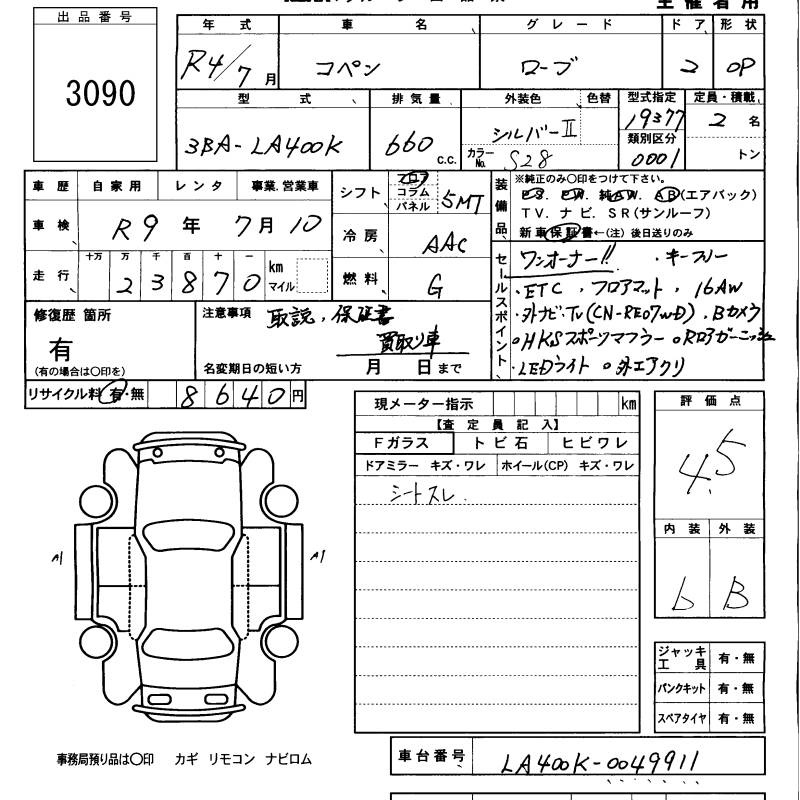 主催者用
出品番号
3090
年式 車名 グレード ドア 形状
R4/7月 コペン ローブ 2 OP
型式 排気量 外装色 色替 型式指定 定員・積載
3BA-LA400K 660 c.c. シルバーII 19377 2名
カラーNo. S28 類別区分 0001 トン
車歴 自家用 レンタ 事業.営業車
シフト フロア コラム パネル 5MT
装備品 ※純正のみ〇印をつけて下さい。
PS. PW. 純AW. AB(エアバック)
TV. ナビ. SR(サンルーフ)
新車保証書←(注) 後日送りのみ
車検 R9年 7月 10
冷房 AAC
走行 十万 万 千 百 十 一
23870 km マイル
燃料 G
セールスポイント
ワンオーナー!! ・キーフリー
・ETC ・フロアマット ・16AW
・外ナビ・TV(CN-RE07WD)・Bカメラ
○HKSスポーツマフラー ○Rロアガーニッシュ
・LEDライト ○外エアクリ
修復歴 箇所
有
(有の場合は〇印を)
注意事項 取説、保証書
買取り車
名変期日の短い方 月 日まで
リサイクル料 有・無 8640円
現メーター指示 km
【査定員記入】
Fガラス トビ石 ヒビワレ
ドアミラー キズ・ワレ ホイール(CP) キズ・ワレ
シートスレ
評価点
4.5
内装 外装
b B
A1 A1
ジャッキ 工具 有・無
パンクキット 有・無
スペアタイヤ 有・無
事務局預り品は〇印 カギ リモコン ナビロム
車台番号 LA400K-0049911